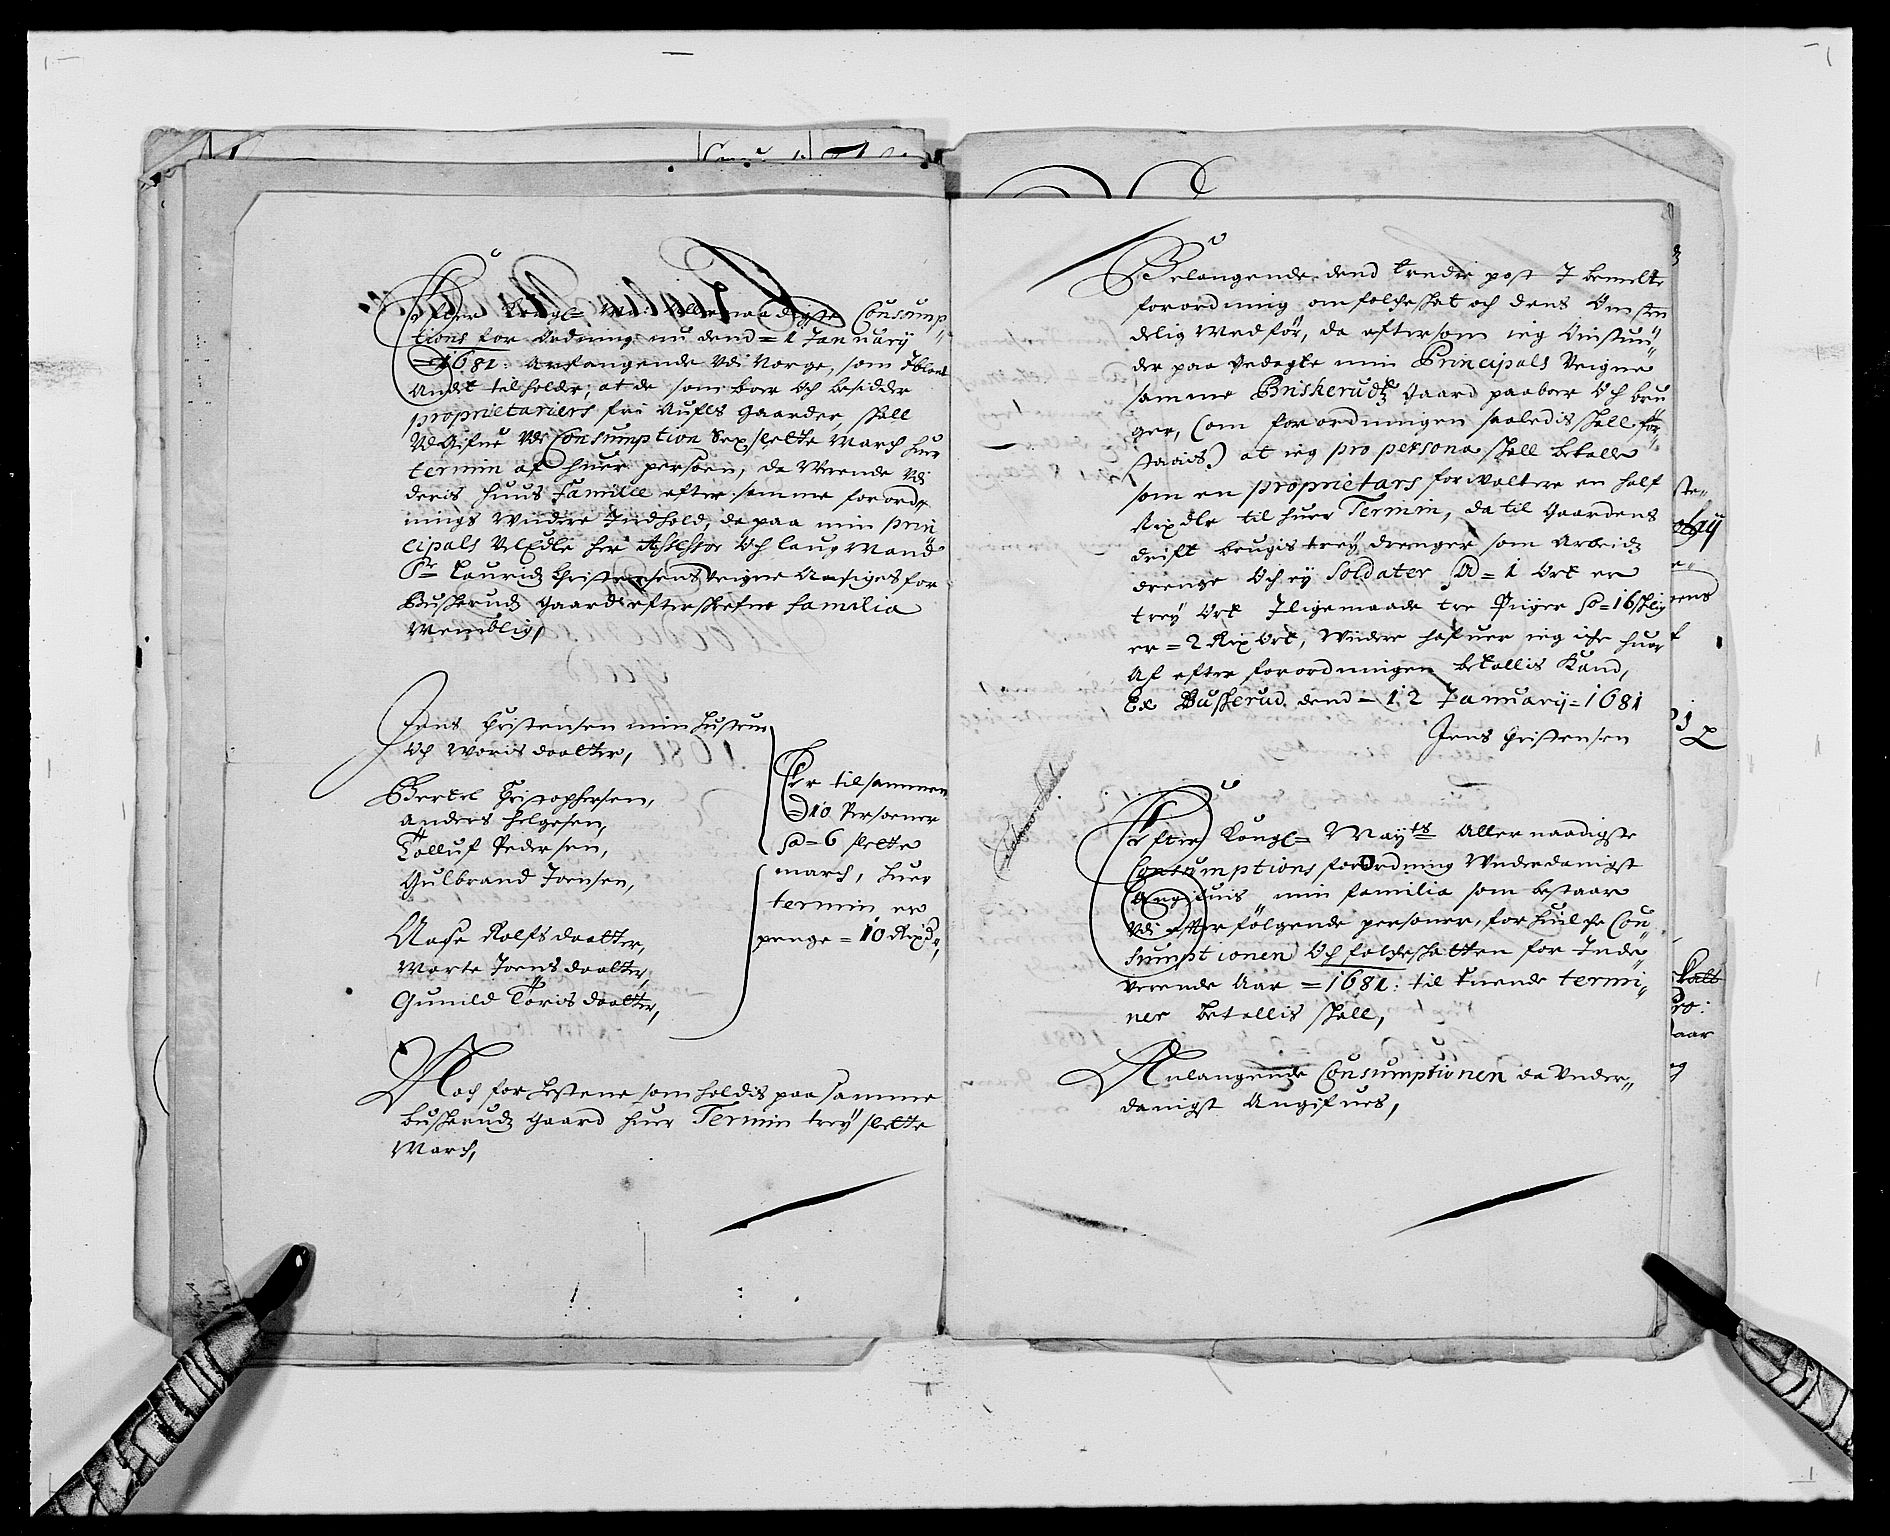 Efter Kongl= Ma: Allernaadigste Consump„
tions for Ordning nu dend = 1 January
= 1681: Anlangende Udi Norge, som Iblant
Andet tilholder, at de som boer Och besidder
proprietariers fri Aufls Gaarder, skall
UdGifue Udi Consumption Sex slette March huer
termin af huer persoen, da Werende Udi
deris Huus Familie efter samme forord„
nings Widere Indhold, da paa min prin„
cipals VelEdle her Assessor Och laug Mand
Sr Lauridz Christensens Veigne Angifues for
Buskerudz Gaard efterskrefne familia
Nemblig,
Jens Christensen min hustrue
Och Woris daatter,
Bertel Christophersen,
Anders Helgesen,
Tolluf Pedersen,
Gulbrand Joensen,
Aase Rolfs daatter,
Marte Joens daatter,
Gunild Töris daatter,
Er tilsammen
= 10 Persoener
à = 6 slette
march, huer
termin er
penge = 10 Rixdr,
Noch for hestene som holdis paa samme
Buskerudz Gaard huer Termin trey slette
March,
Belangende dend tredie post I bemelte
forordning om folcheskat och dens Omsten
delig Medför, da eftersom ieg Omstun„
der paa Vedegte min Principals Veigne
samme Buskerudtz Gaard paaboer Och bru„
ger, (om forordningen saaledis skall for„
staais) at ieg pro persona skall betalle
som en proprietars forvaltere en half
Rixdlr til huer Termin, da til Gaardens
drift brugis trey drenger som Arbeidz
drenge Och ey Soldater Ad = 1 Ort er
trey Ort Iligemaade tre Piiger à = 16 skilg
er = 2 Rix Ort, Widere hafuer ieg iche huor
Af efter forordningen betallis kand,
Ex Buskerud dend = 12 January = 1681
Jens Christensen
Efter Kongl= Mayts Allernaadigste
Consumptions forOrdning Underdanigst
Angifuis min familia som bestaar
Udi efterfölgende personer, for huilche Con„
sumptionen Och folcheskatten for Inde„
verende Aar = 1681: til tuende termi„
ner betallis skall,
Anlangende Consumptionen da Under„
danigst Angifues,